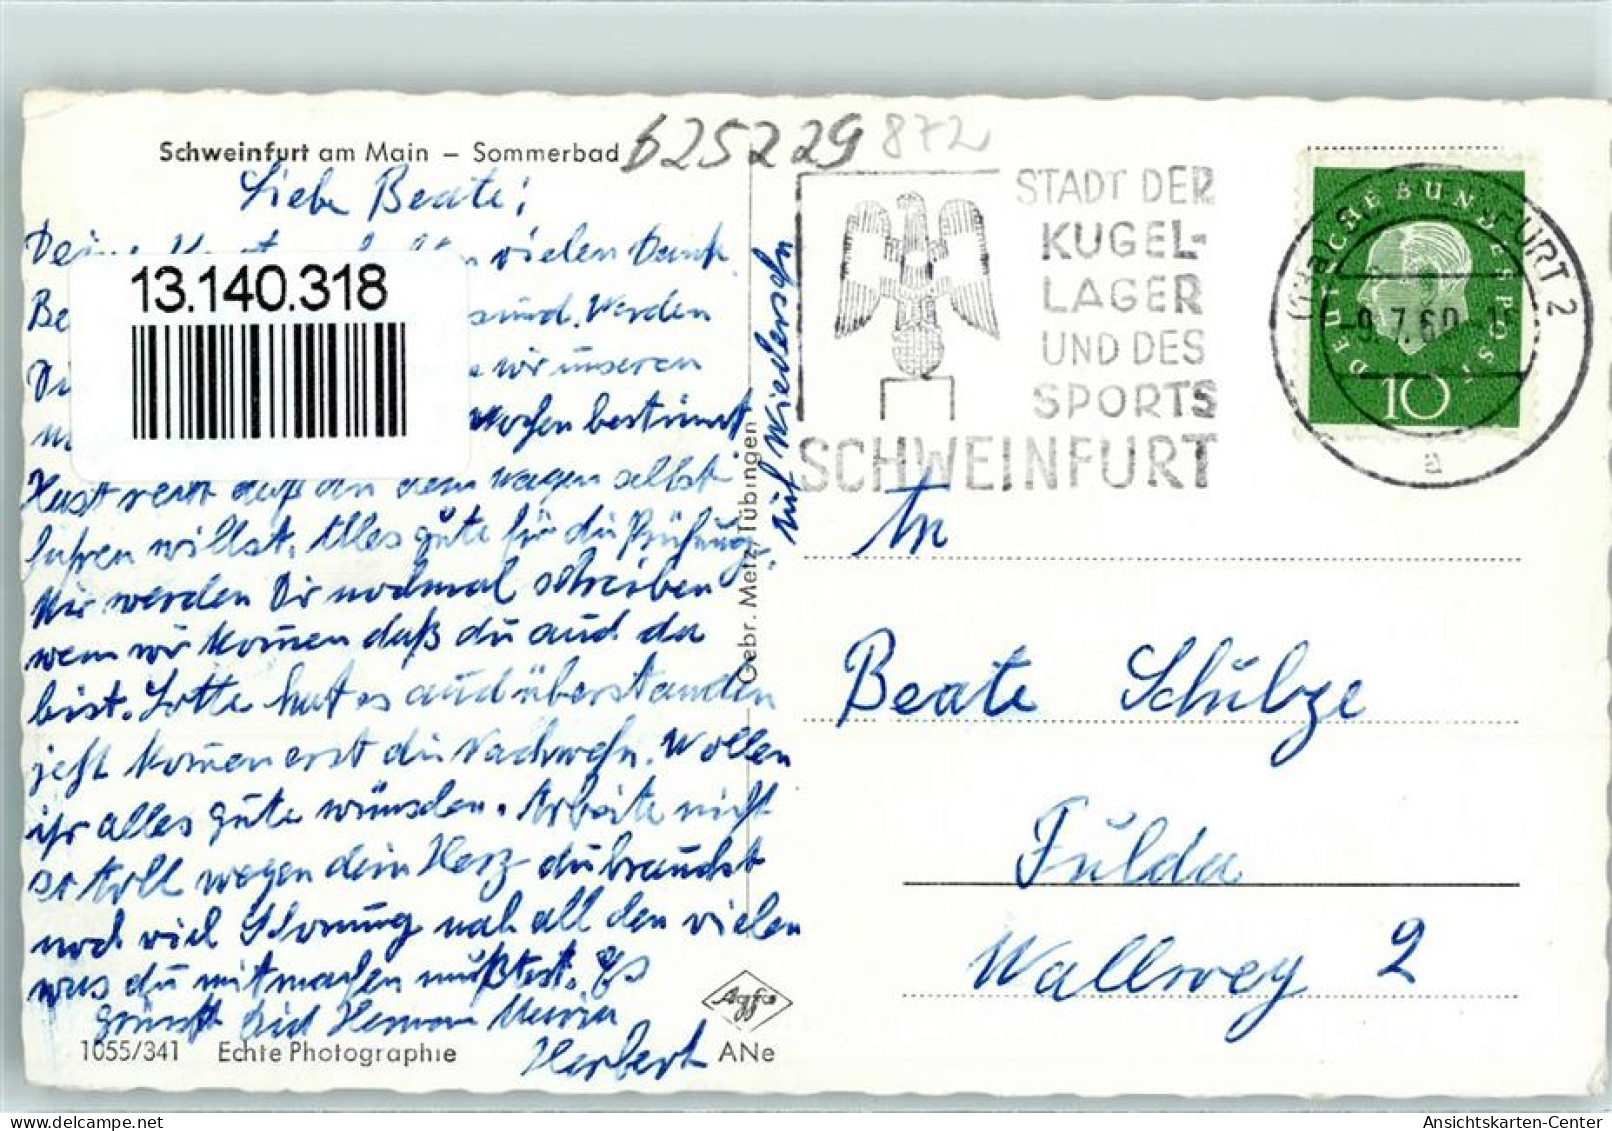 Schweinfurt am Main – Sommerbad
625229
872
Liebe Beate!
vielen Dank
13.140.318
Be sund. Werden
wir unseren
Wochen bestimmt
Hast recht daß du den Wagen selbst
fahren willst. Alles gute für die Prüfung.
Wir werden Dir nochmal schreiben
wenn wir kom̄en daß du auch da
bist. Lotte hat es auch überstanden
jetzt kom̄en erst die Nachwehn. Wollen
ihr alles gute wünschen. Arbeite nicht
so toll wegen dein Herz du brauchst
noch viel Schonung nach all den vielen
was du mitmachen mußtest. Es
grüsst Dich Hermann Maria
Herbert
auf Wiedersehn
1055/341 Echte Photographie
Gebr. Metz, Tübingen
Agfa
ANe
STADT DER
KUGEL-
LAGER
UND DES
SPORTS
SCHWEINFURT
DEUTSCHE BUNDESPOST
10
FURT 2
-9.7.60
a
An
Beate Schulze
Fulda
Wallweg 2
Ansichtskarten-Center